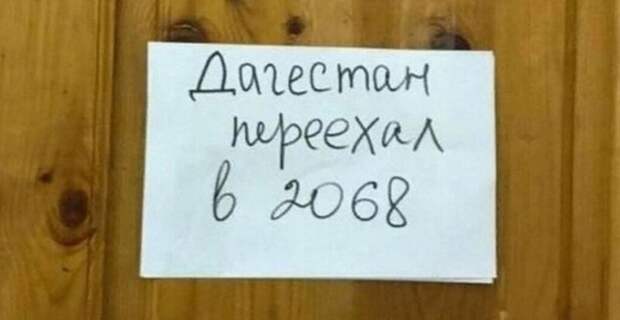 Дагестан
переехал
в 2068